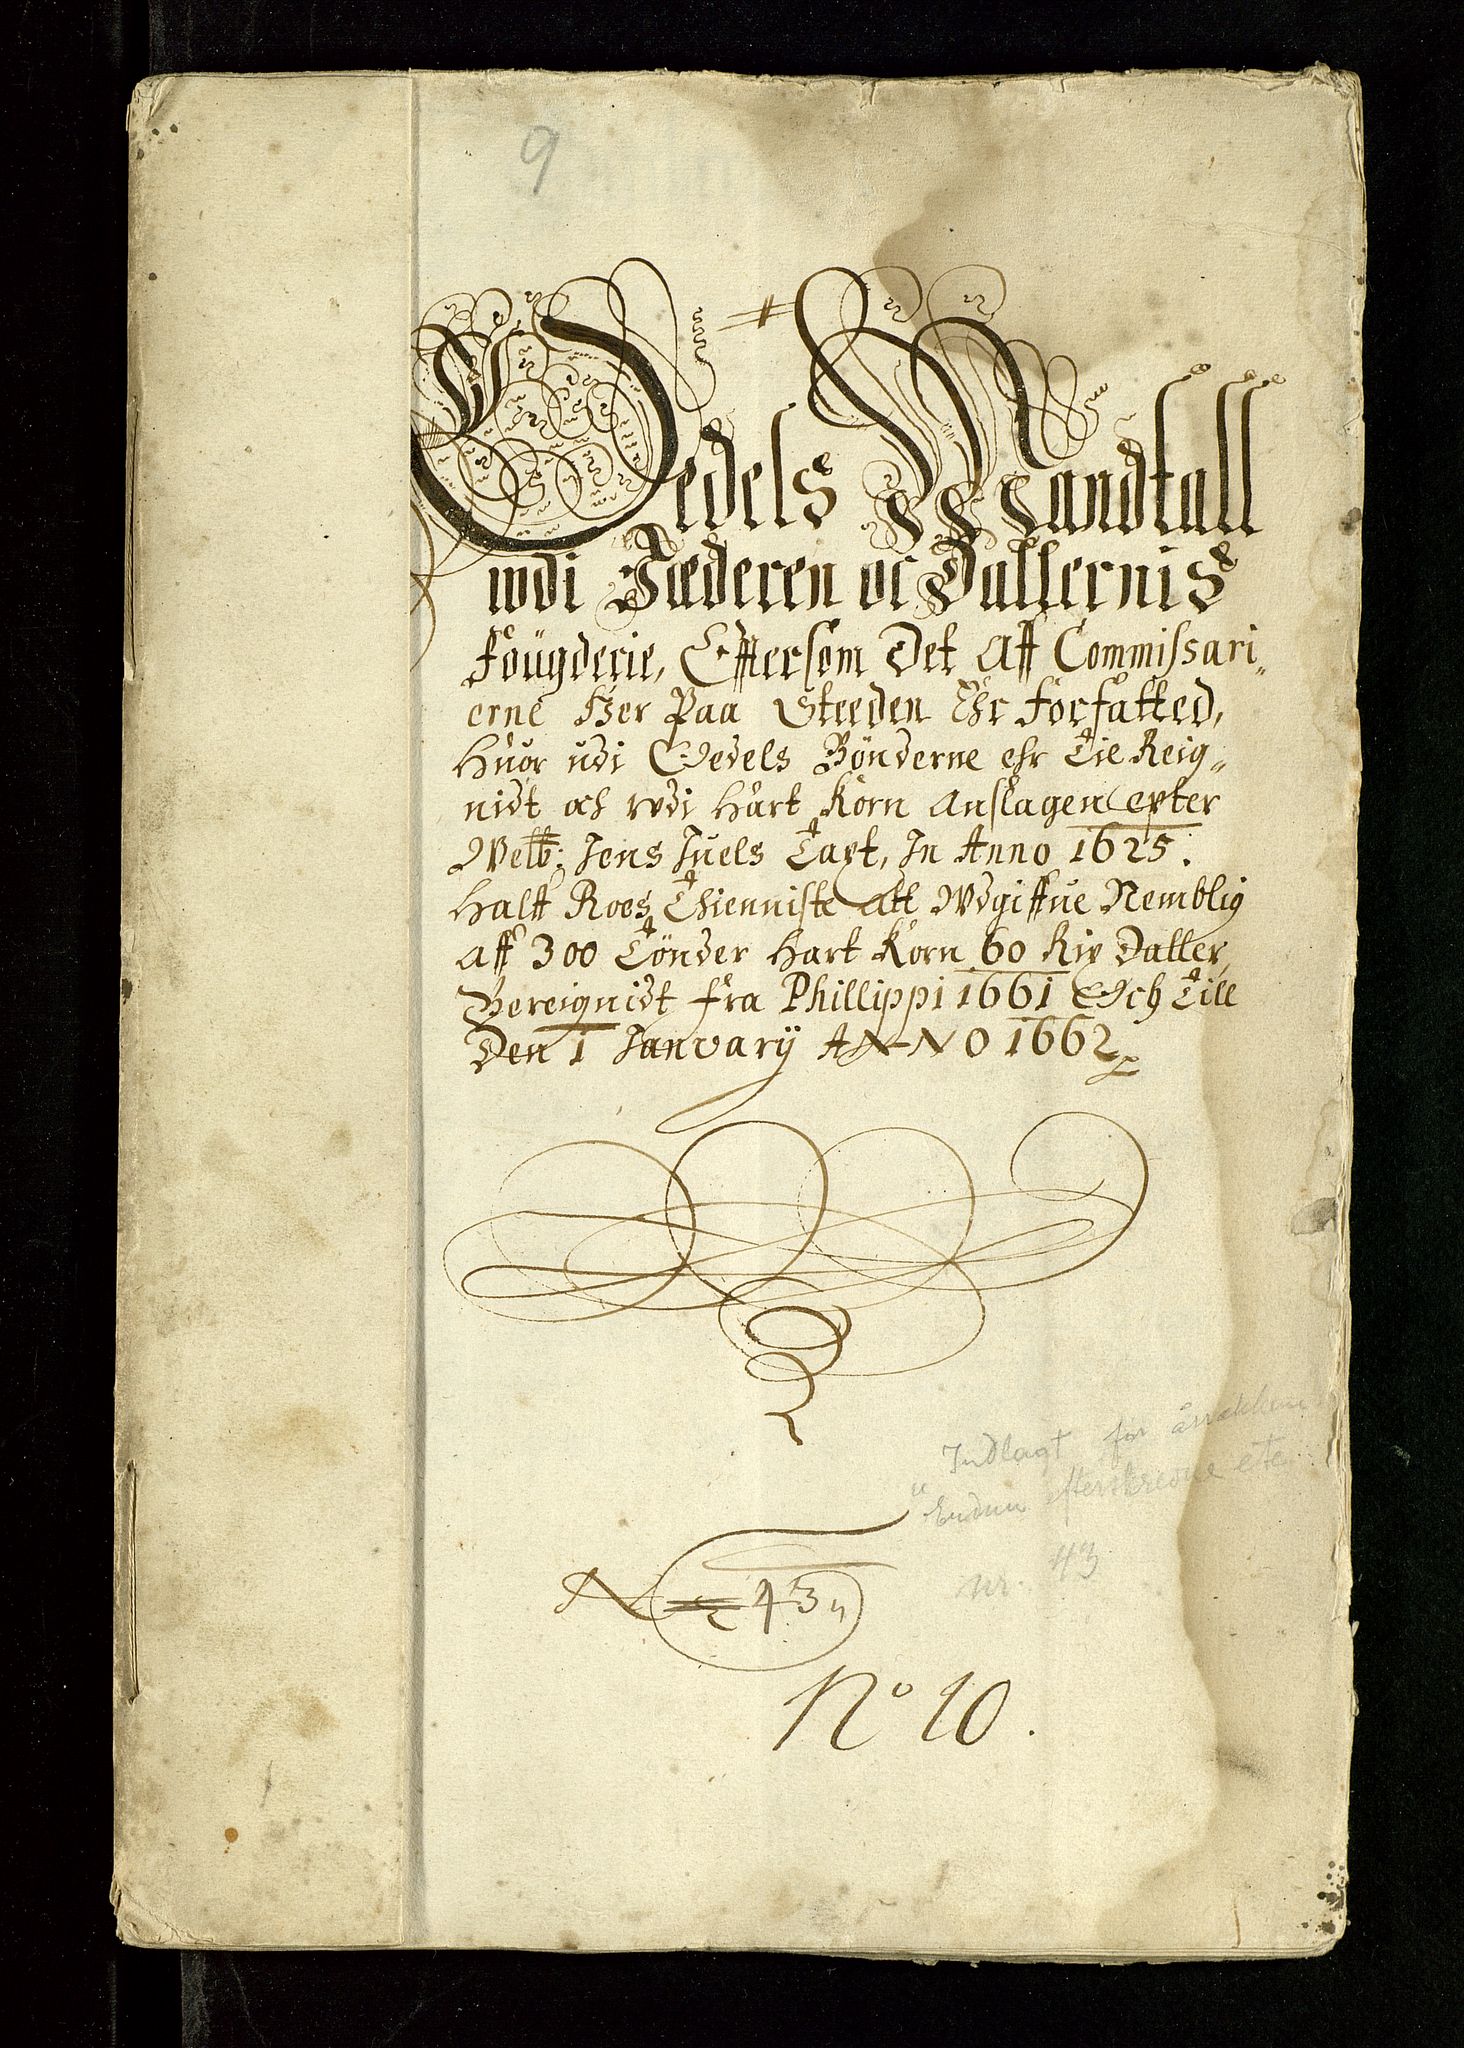 9
Oedels Mandtall
wdi Jæderen oc Dallernis
fougderie, Efftersom Det Aff Commissari„
erne Her Paa Steeden Ehr forfatted,
Huor udi Oedels Bönderne ehr Tie Reig„
nidt och rvdi Hart Korn Anslagen epter
Welb: Jens Juels Taxt, In Anno 1625.
Halff Roes Thienniste Att Wdgiffue Nemblig
Aff 300 Tönder Hart Korn 60 Rix Daller,
Bereignidt fra Phillippi 1661 Och Till
Den 1 Janvarij ANNO 1662
Indlagt for årrækken
efterskrevne etc
nr. 43
N 43„
No 10.